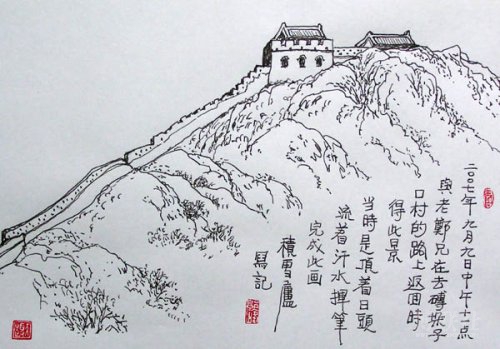 二〇〇七年九月九日中午十一点
與老鄭兄在去磚垛子
口村的路上返回時
得此景
当時是頂着日頭
流着汗水揮筆
完成此画
積雪廬
寫記